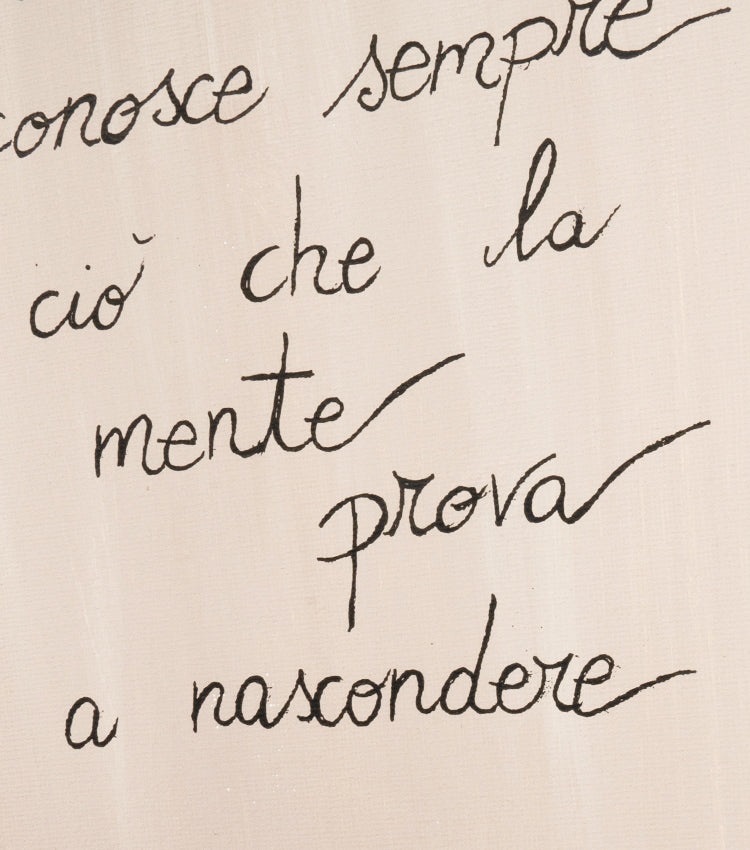 conosce sempre
ciò che la
mente
prova
a nascondere